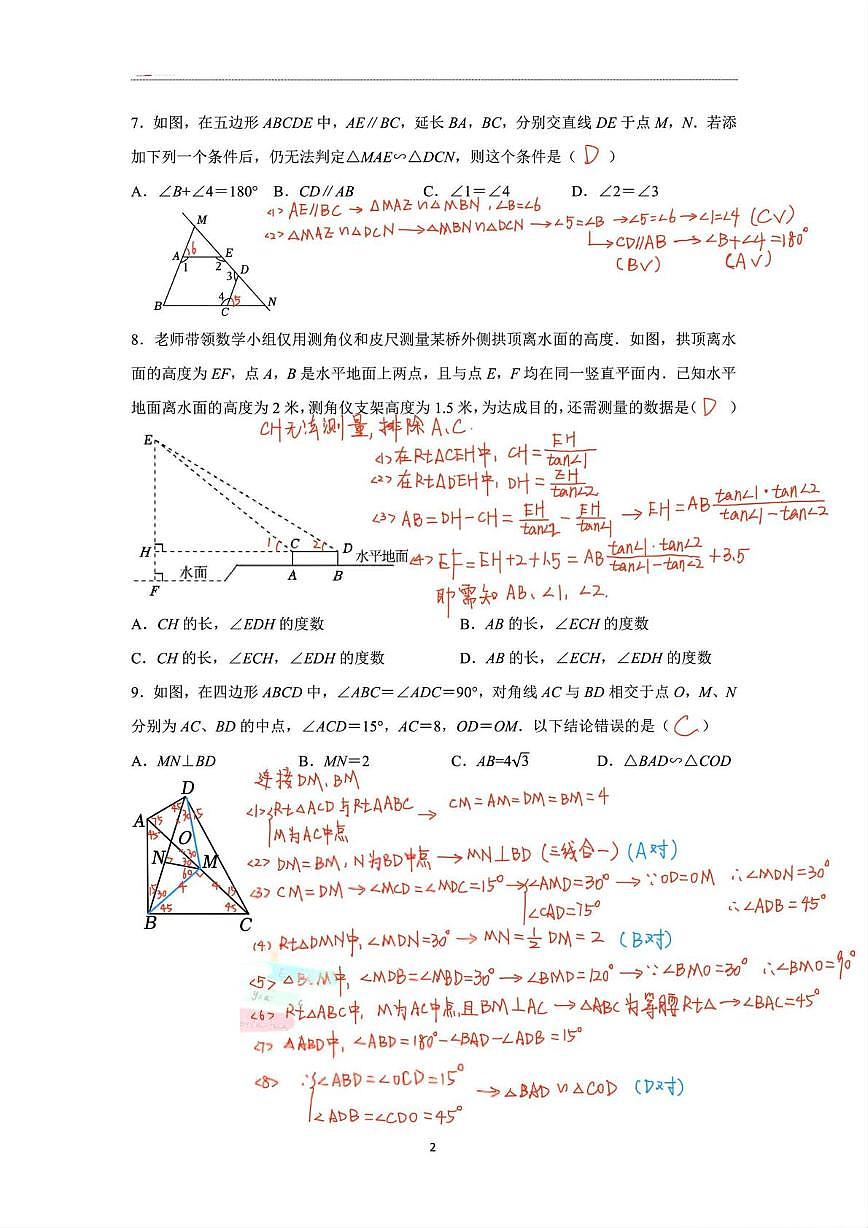 7．如图，在五边形 ABCDE 中，AE∥BC，延长 BA，BC，分别交直线 DE 于点 M，N．若添
加下列一个条件后，仍无法判定△MAE∽△DCN，则这个条件是（ D ）
A．∠B+∠4＝180° B．CD∥AB C．∠1＝∠4 D．∠2＝∠3
<1> AE∥BC → △MAE∽△MBN，∠B=∠6
<2> △MAE∽△DCN → △MBN∽△DCN → ∠5=∠B → ∠5=∠6 → ∠1=∠4 (C√)
→ CD∥AB → ∠B+∠4=180°
(B√) (A√)
M
A 6 E
1 2 3 D
4 5
B C N
8．老师带领数学小组仅用测角仪和皮尺测量某桥外侧拱顶离水面的高度．如图，拱顶离水
面的高度为 EF，点 A，B 是水平地面上两点，且与点 E，F 均在同一竖直平面内．已知水平
地面离水面的高度为 2 米，测角仪支架高度为 1.5 米，为达成目的，还需测量的数据是（ D ）
CH无法测量，排除A、C．
<1> 在Rt△CEH中，CH = EH/tan∠1
<2> 在Rt△DEH中，DH = EH/tan∠2
<3> AB = DH-CH = EH/tan∠2 - EH/tan∠1 → EH = AB tan∠1·tan∠2/tan∠1-tan∠2
<4> EF = EH+2+1.5 = AB tan∠1·tan∠2/tan∠1-tan∠2 +3.5
即需知 AB、∠1，∠2．
E
H 1 C 2 D 水平地面
水面 A B
F
A．CH 的长，∠EDH 的度数 B．AB 的长，∠ECH 的度数
C．CH 的长，∠ECH，∠EDH 的度数 D．AB 的长，∠ECH，∠EDH 的度数
9．如图，在四边形 ABCD 中，∠ABC＝∠ADC＝90°，对角线 AC 与 BD 相交于点 O，M、N
分别为 AC、BD 的中点，∠ACD＝15°，AC＝8，OD＝OM．以下结论错误的是（ C ）
A．MN⊥BD B．MN＝2 C．AB=4√3 D．△BAD∽△COD
连接DM、BM
<1> { Rt△ACD与Rt△ABC → CM=AM=DM=BM=4
M为AC中点
<2> DM=BM，N为BD中点 → MN⊥BD (三线合一) (A对)
<3> CM=DM → ∠MCD=∠MDC=15° → ∠AMD=30° → ∵OD=OM ∴∠MDN=30°
∠CAD=75° ∴∠ADB=45°
(4) Rt△DMN中，∠MDN=30° → MN=1/2 DM=2 (B对)
<5> △B M中，∠MDB=∠MBD=30° → ∠BMD=120° → ∵∠BMO=30° ∴∠BMO=90°
<6> Rt△ABC中，M为AC中点，且BM⊥AC → △ABC为等腰Rt△ → ∠BAC=45°
<7> △ABD中，∠ABD=180°-∠BAD-∠ADB=15°
<8> ∵{ ∠ABD=∠OCD=15° → △BAD∽△COD (D对)
∠ADB=∠CDO=45°
D
45 30 15
A 75
45 O 30
N 30 M
60
15 30 4 4 15
45 45
B C
2